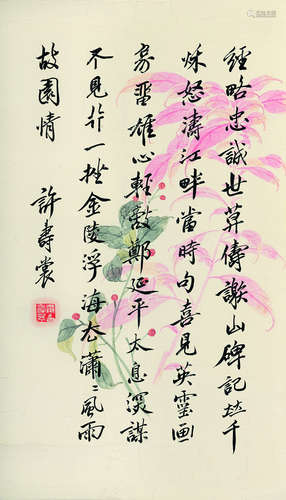 經略忠誠世莫儔謝山碑記越千
秋怒濤江畔當時句喜見英靈画
裏留雄心輕敵鄭延平太息深謀
不見行一挫金陵浮海去瀟瀟風雨
故園情
許壽裳